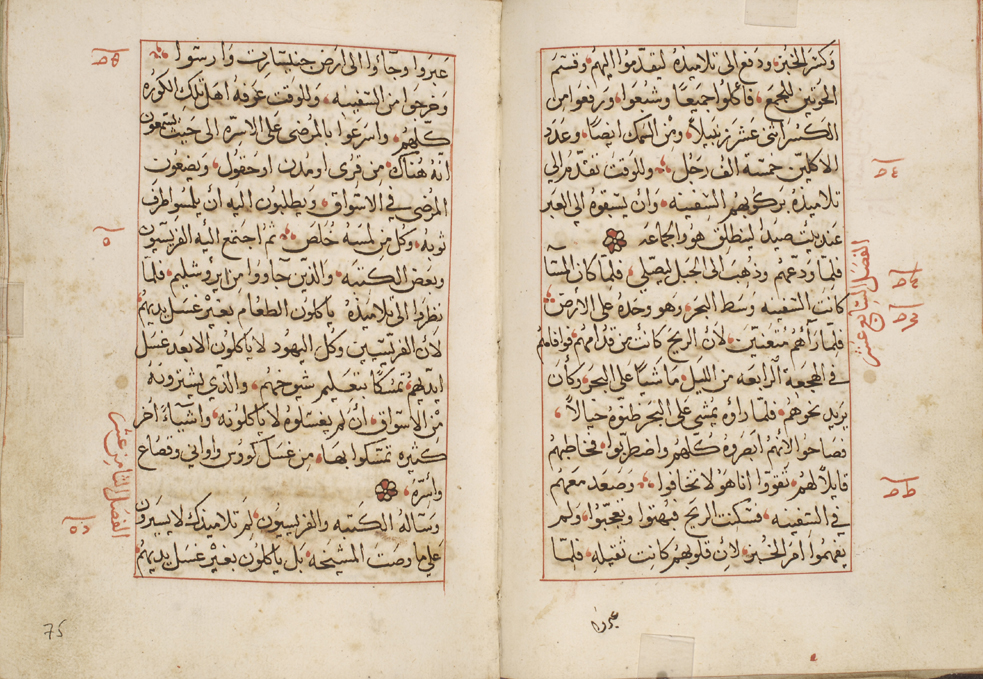 وكسر الخبز، ودفع الى تلاميذه ليقدموا اليهم، وقسم
الحوتين للجمع، فأكلوا جميعًا وشبعوا، ورفعوا من
الكسر اثنى عشر زنبيلاً، ومن السمك ايضًا، وعدد
الاكلين خمسة الف رجل، وللوقت تقدم الى
تلاميذه بركوبهم السفينه، وأن يسبقوه الى العبر
عند بيت صيدا لينطلق هو والجماعه
الفصل السابع عشر
فلما ودعهم وذهب الى الجبل ليصلي، فلما كان المسآ
كانت السفينه وسط البحر، وهو وحده على الأرض
فلما رآهم متعبين، لأن الريح كانت من قدامهم، فوافاهم
في الهجعة الرابعه من الليل، ماشيًا على البحر، وكان
يريد نحوهم، فلما راوه يمشي على البحر ظنوه خيالاً،
فصاحوا لأنهم ابصروه كلهم واضطربوا، فخاطبهم
قايلاً لهم، تقووا انا هو لا تخافوا، وصعد معهم
في السفينه، فسكنت الريح فبهتوا وتعجبوا، ولم
يفهموا امر الخبز، لأن قلوبهم كانت ثقيله، فلما
عبروا
عبروا وجآوا الى ارض جناسارت وارسوا
وخرجوا من السفينه، وللوقت عرفه اهل تلك الكوره
كلهم، واسرعوا بالمرضى على الاسره الى حيث يسمعون
انه هناك، من قرى او مدن او حقول، ويضعون
المرضى في الاسواق، ويطلبون اليه أن يلمسوا طرف
ثوبه، وكل من لمسه خلص، ثم اجتمع اليه الفريسيون
وبعض الكتبه، والذين جاووا من ايروشليم، فلما
نظروا الى تلاميذه يأكلون الطعام بغير غسل يديهم
لأن الفريسيين وكل اليهود لا يأكلون الا بعد غسل
ايديهم تمسكًا بتعليم شيوخهم، والذي يشترونه
من الاسواق، ان لم يغسلوه لا يأكلونه، واشيآء اخر
كثيره تمسكوا بها، من غسل كووس واواني وقصاع
واسره
الفصل الثامن عشر
وساله الكتبه والفريسيون، لم تلاميذك لا يسيرون
على ما وصت المشيخه، بل ياكلون بغير غسل يديهم
75